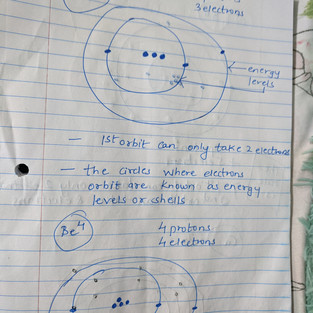 3 electrons
energy
levels
— 1st orbit can only take 2 electrons
— the circles where electrons
orbit are known as energy
levels or shells
Be4
4 protons
4 electrons